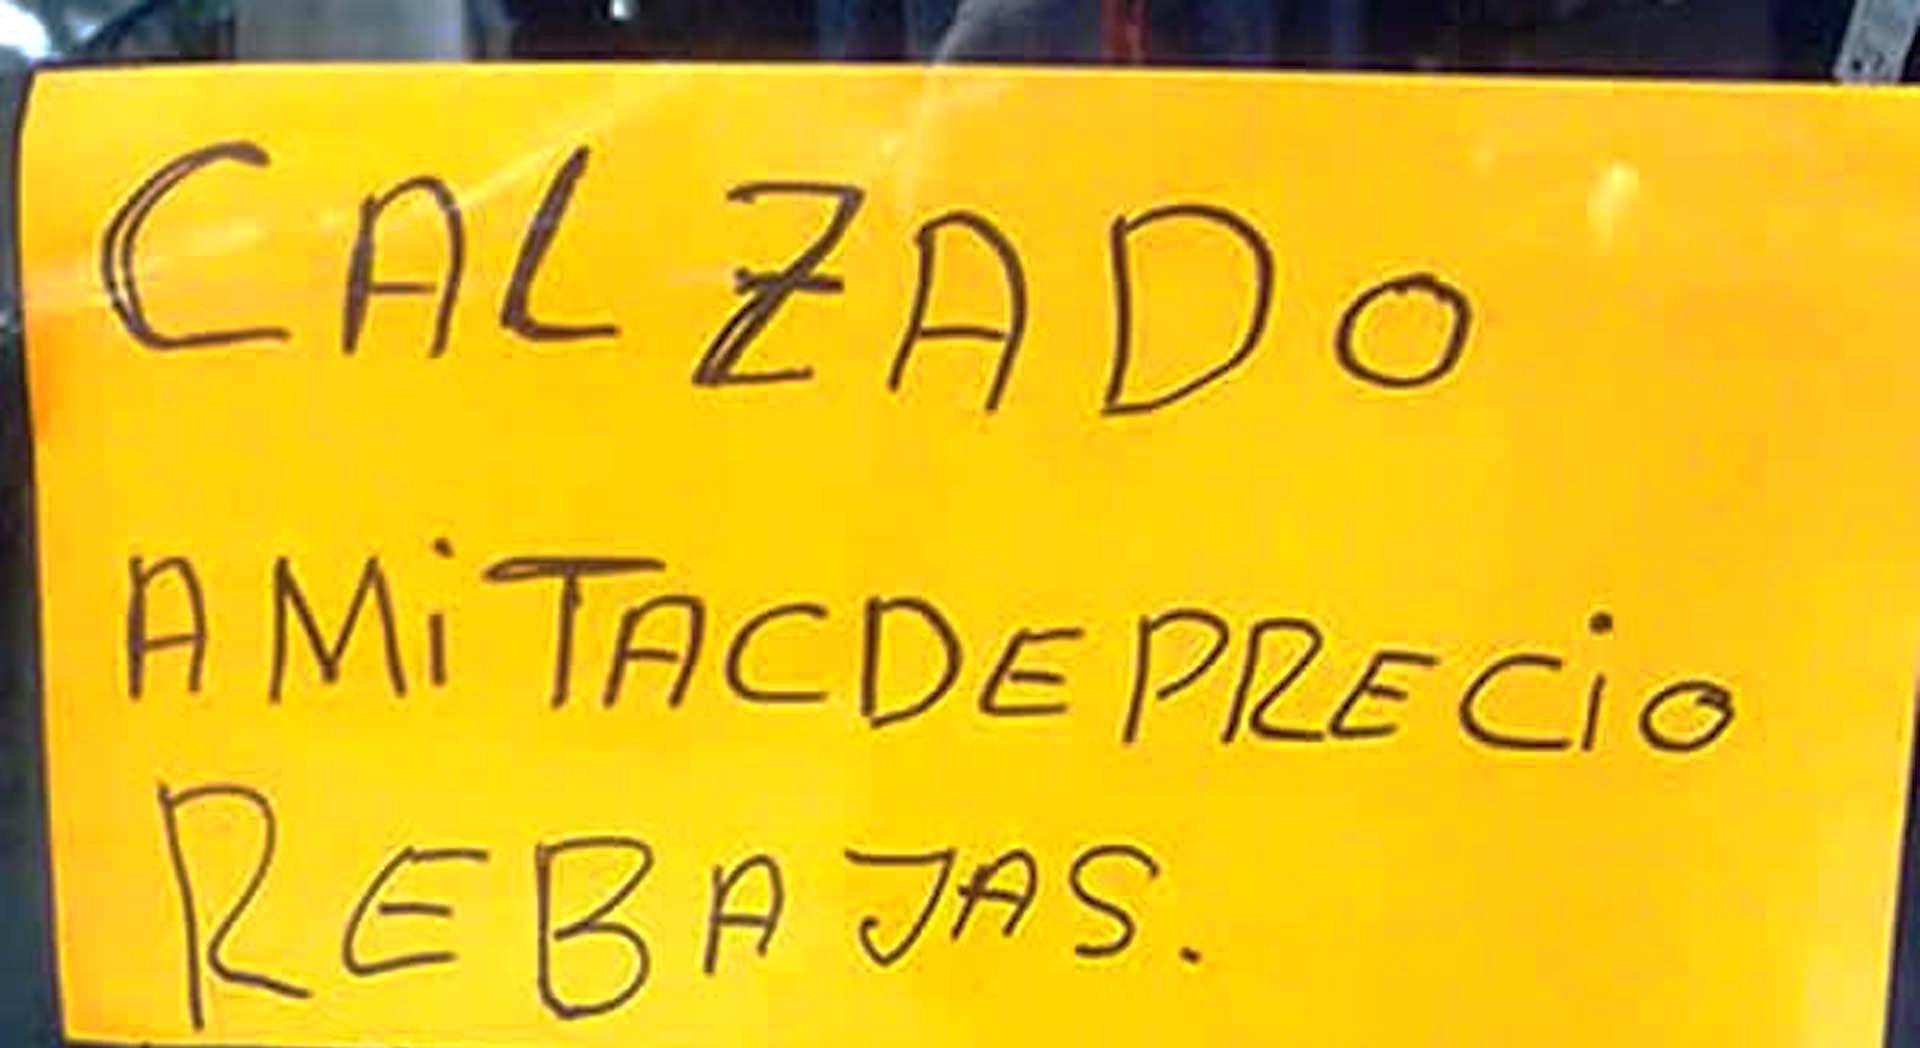 CALZADO
A MiTACDEPRECiO
REBAJAS.